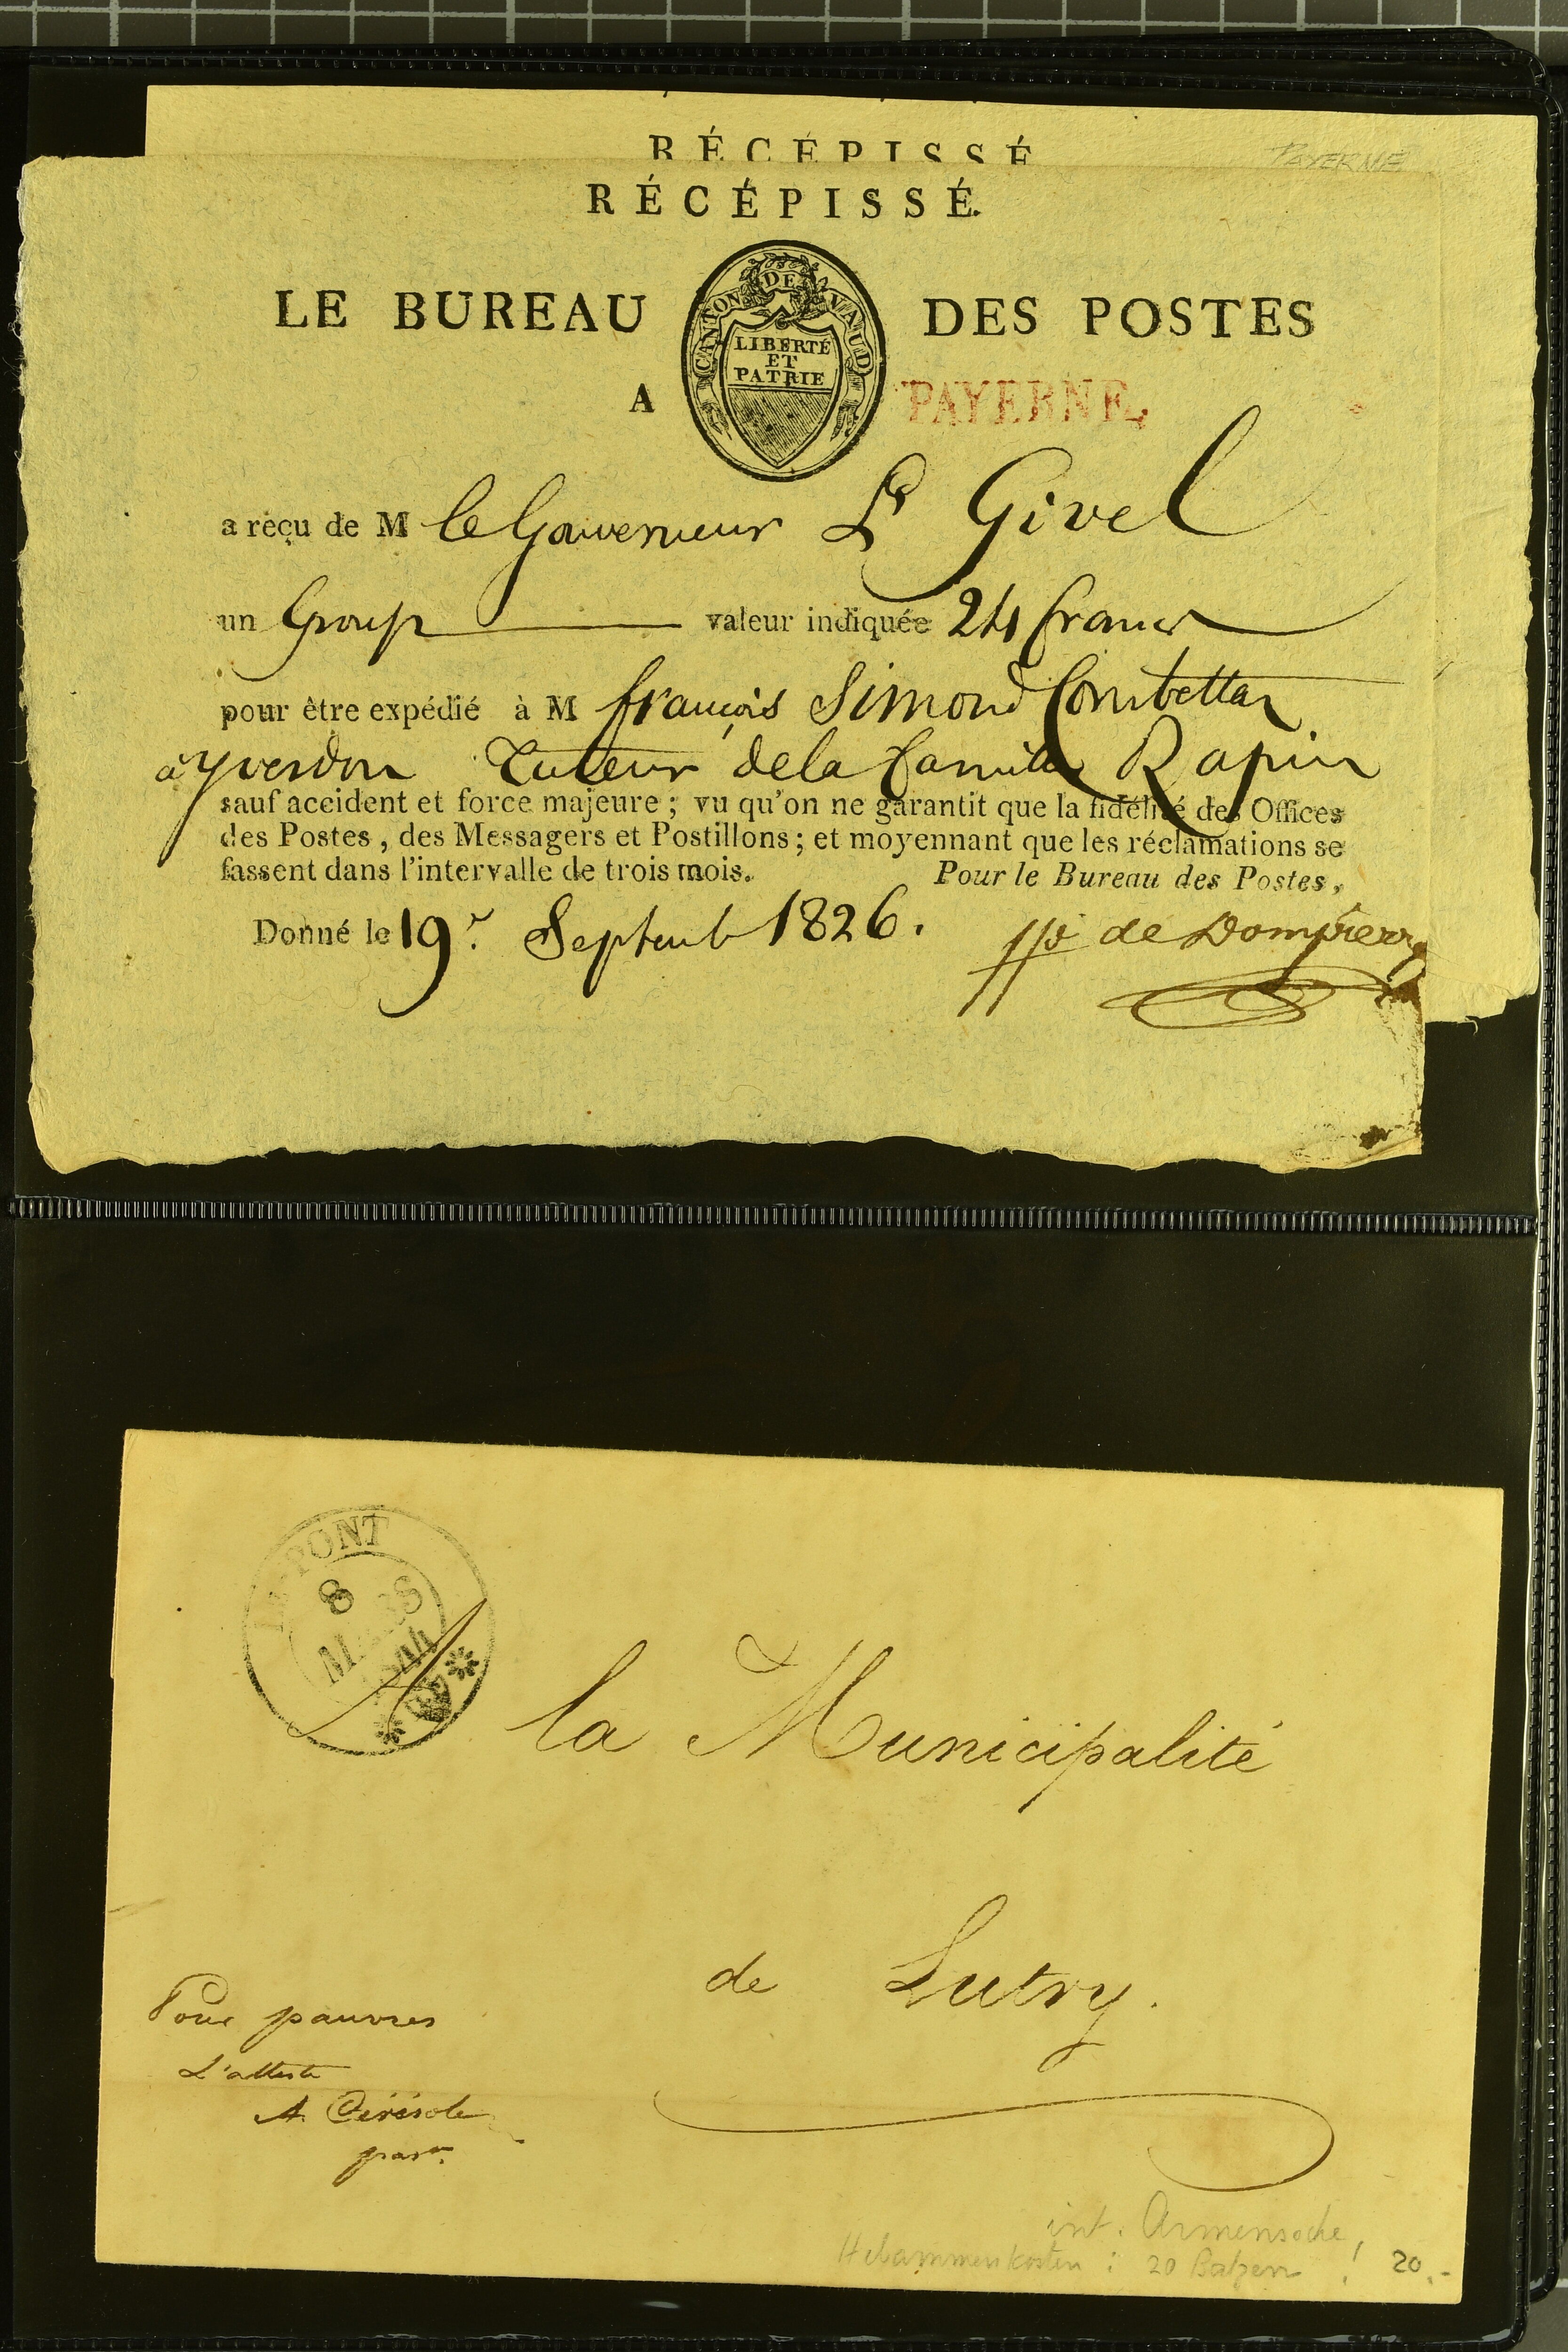 RÉCÉPISSÉ
PAYERNE
RÉCÉPISSÉ.
LE BUREAU DES POSTES
CANTON DE VAUD
LIBERTÉ
ET
PATRIE
A PAYERNE
a reçu de M le Gouverneur Ls Givel
un Group valeur indiquée 24 francs
pour être expédié à M françois Simond Combettaz
à Yverdon Tuteur de la famille Rapin
sauf accident et force majeure ; vu qu'on ne garantit que la fidélité des Offices
des Postes, des Messagers et Postillons ; et moyennant que les réclamations se
fassent dans l'intervalle de trois mois. Pour le Bureau des Postes,
Donné le 19e Septemb 1826. de Dompierre
LE PONT
8
MARS
A la Municipalité
de Lutry.
Pour pauvres
L'atteste
A Cérésole
past.
int. Armensache,
Hebammenkosten : 20 Batzen ! 20.-